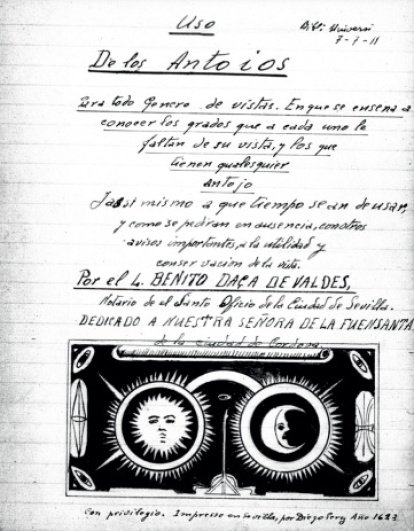 Uso
Bibl. Universi
7-7-11
De los Antoios
Para todo genero de vistas. En que se enseña a
conocer los grados que a cada uno le
faltan de su vista, y los que
tienen qualesquier
antojo
Jassi mismo a que tiempo se an de usar,
y como se pediran en ausencia, con otros
avisos importantes, a la utilidad y
conservacion de la vista.
Por el L. BENITO DAÇA DE VALDES,
Notario de el Santo Oficio de la Ciudad de Sevilla.
DEDICADO A NUESTRA SEÑORA DE LA FUENSANTA
de la ciudad de Cordova.
Con privilegio. Impresso en Sevilla, por Diego Perez Año 1623